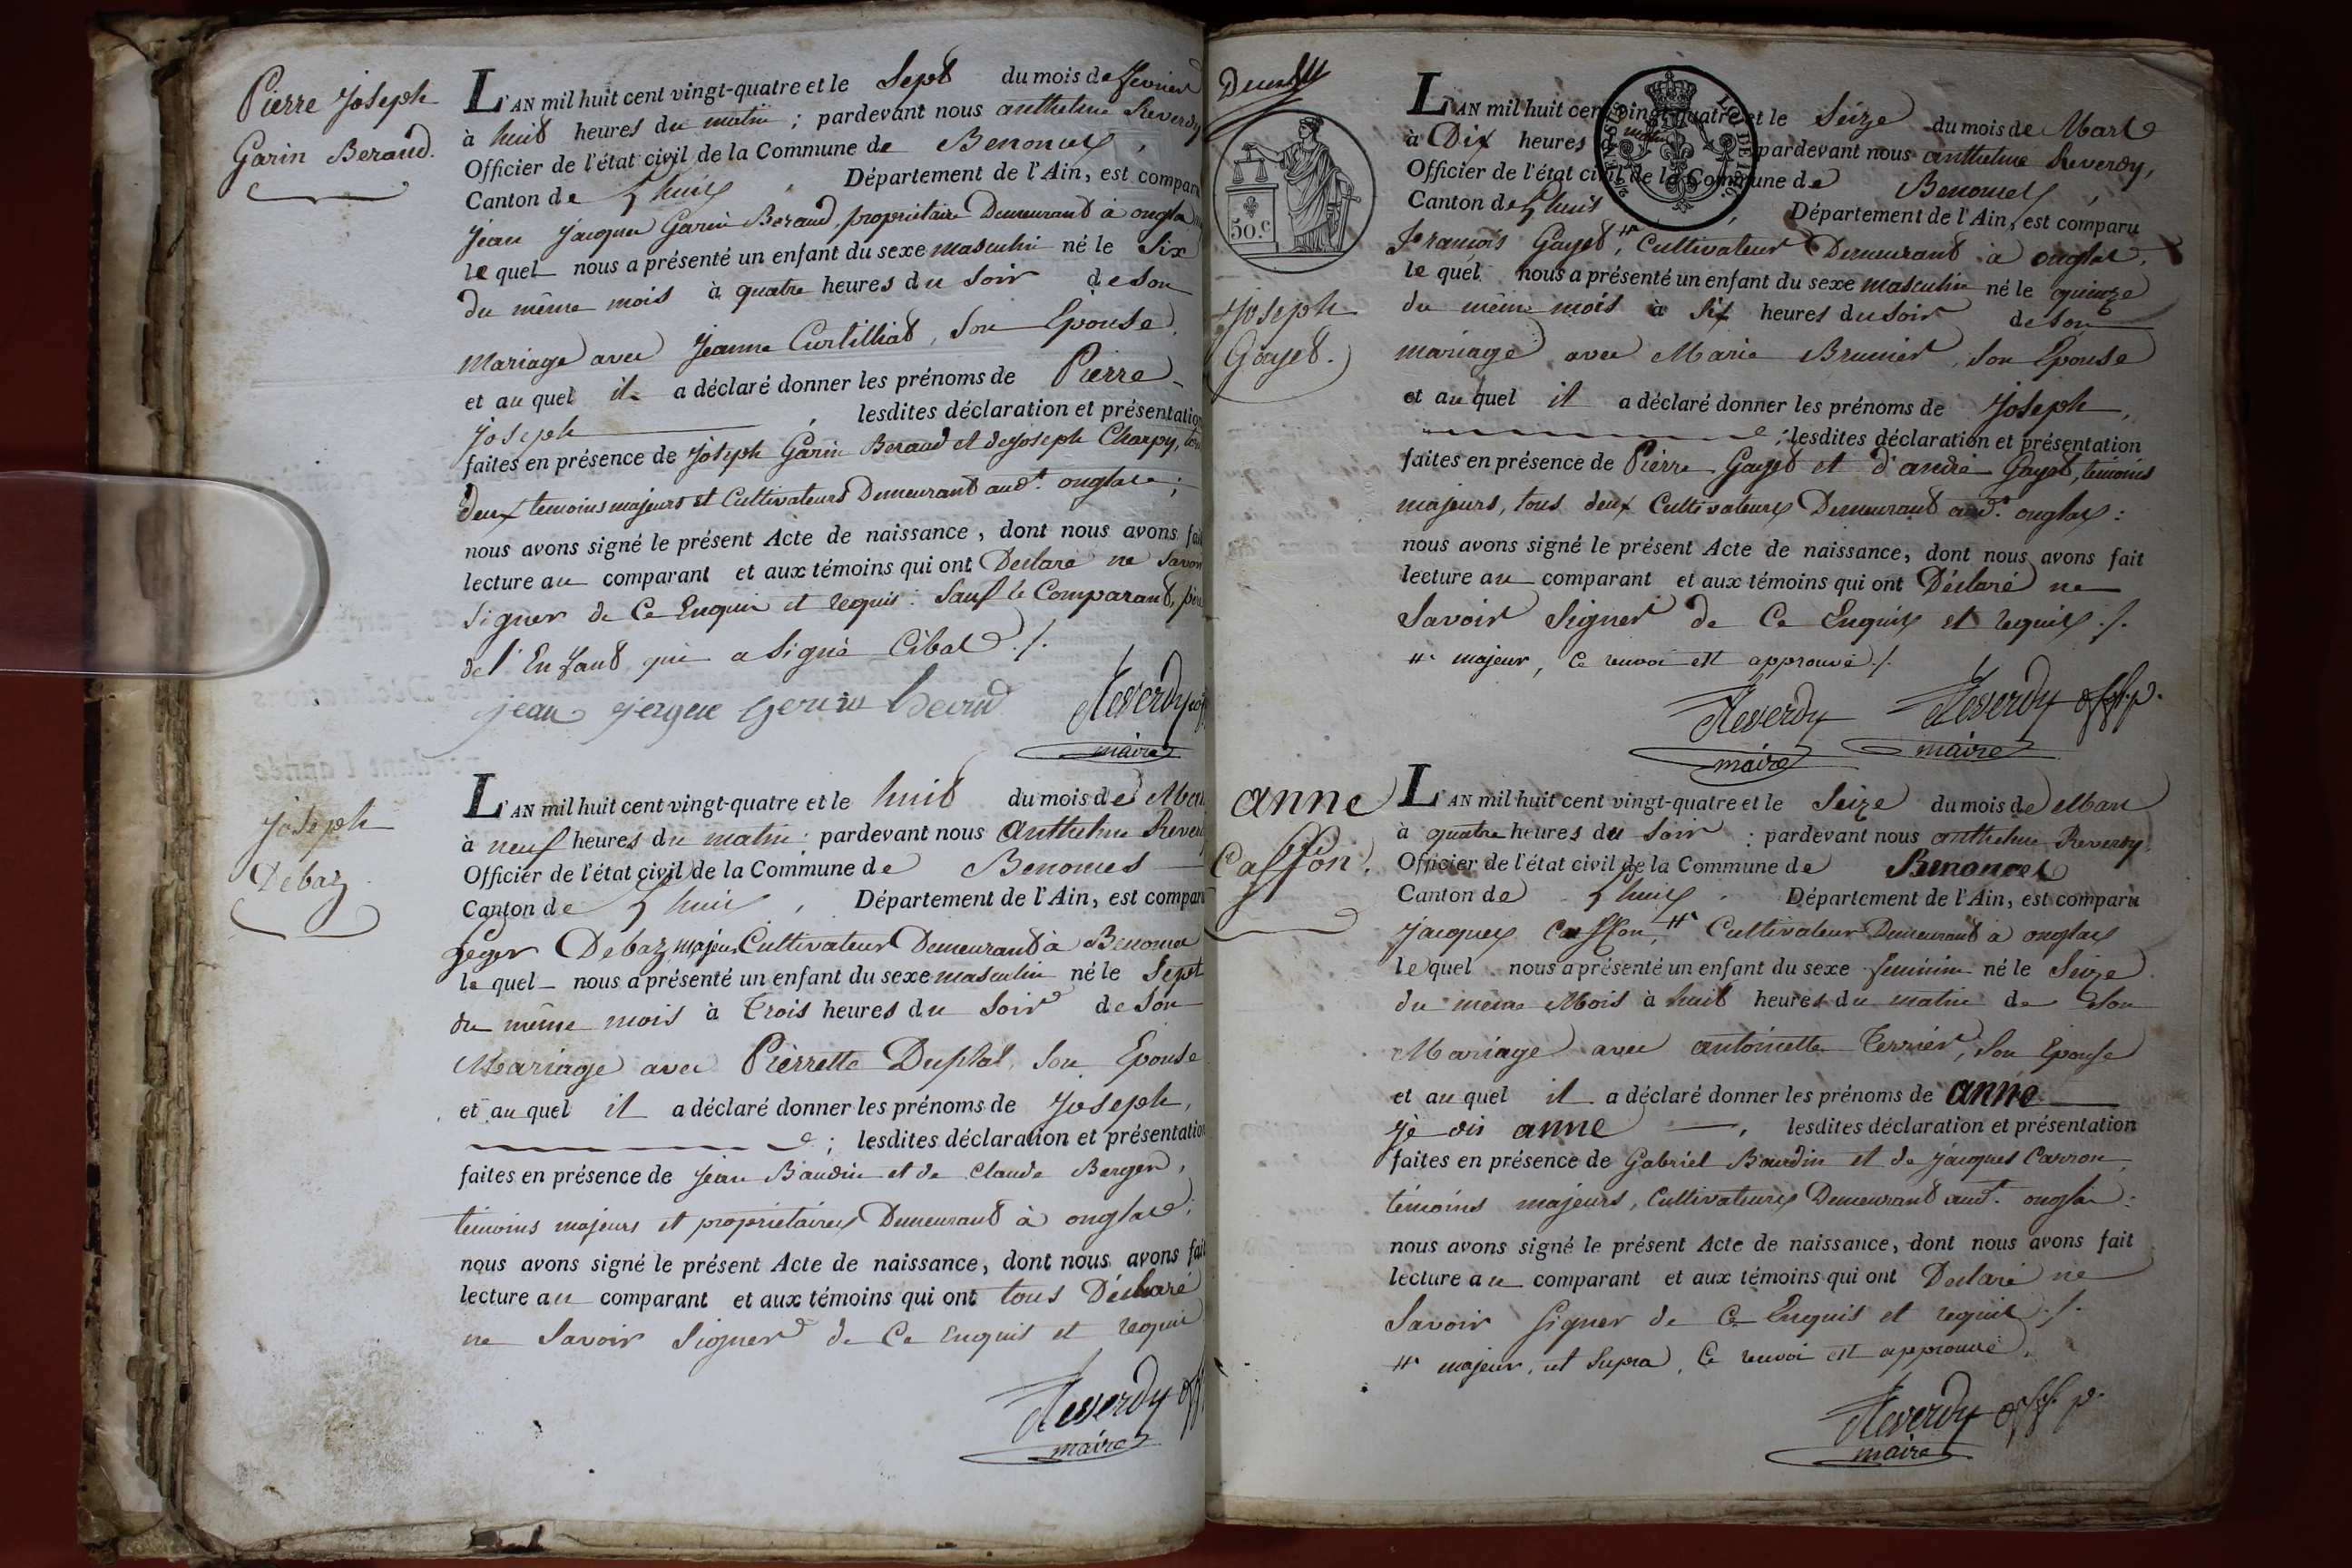 Pierre Joseph
Garin Beraud.
L'AN mil huit cent vingt-quatre et le Sept du mois de fevrier
à huit heures du matin ; pardevant nous anthelme Reverdy
Officier de l'état civil de la Commune de Benonces,
Canton de Lhuis, Département de l'Ain, est comparu
jean jacques Garin Beraud, proprietaire Demeurant à onglas
le quel nous a présenté un enfant du sexe masculin né le Six
du même mois à quatre heures du soir de son
Mariage avec Jeanne Curtilliat, son Epouse,
et au quel il a déclaré donner les prénoms de Pierre
joseph, lesdites déclaration et présentation
faites en présence de joseph Garin Beraud et de joseph Charpy, tous
deux temoins majeurs et Cultivateurs Demeurant audt. onglas ;
nous avons signé le présent Acte de naissance, dont nous avons fait
lecture au comparant et aux témoins qui ont Declaré ne Savoir
signer de Ce Enquis et requis : Sauf le Comparant, père
de l'Enfant qui a signé ./.
jean Reverdy
maire
Joseph
Debaz
L'AN mil huit cent vingt-quatre et le huit du mois de Mars
à neuf heures du matin : pardevant nous Anthelme Reverdy
Officier de l'état civil de la Commune de Benonces
Canton de Lhuis, Département de l'Ain, est comparu
Debaz majeur Cultivateur Demeurant à Benonces
le quel nous a présenté un enfant du sexe masculin né le Sept
du même mois à Trois heures du soir de son
Mariage avec Pierrette Duplat, son Epouse
et au quel il a déclaré donner les prénoms de Joseph,
; lesdites déclaration et présentation
faites en présence de jean Baudin et de Claude Berger,
témoins majeurs et proprietaires Demeurant à onglas ;
nous avons signé le présent Acte de naissance, dont nous avons fait
lecture au comparant et aux témoins qui ont tous Déclaré
ne Savoir Signer de Ce Enquis et requis
Reverdy off
maire
50.c
LOI DE 1816
Joseph
Gayet.
L'AN mil huit cent vingt-quatre et le Seize du mois de Mars
à Dix heures du matin pardevant nous anthelme Reverdy,
Officier de l'état civil de la Commune de Benonces,
Canton de Lhuis, Département de l'Ain, est comparu
François Gayet, Cultivateur Demeurant à onglas,
le quel nous a présenté un enfant du sexe masculin né le quinze
du même mois à Six heures du soir de son
mariage avec Marie Brunier, son Epouse
et au quel il a déclaré donner les prénoms de Joseph,
; lesdites déclaration et présentation
faites en présence de Pierre Gayet et d'andré Gayet, temoins
majeurs, tous deux Cultivateurs Demeurant audt. onglas :
nous avons signé le présent Acte de naissance, dont nous avons fait
lecture au comparant et aux témoins qui ont Déclaré ne
Savoir Signer de Ce Enquis et requis ./.
majeur, Ce renvoi est approuvé ./.
Reverdy Reverdy off. p.
maire maire
anne
Caffon.
L'AN mil huit cent vingt-quatre et le Seize du mois de Mars
à quatre heures du Soir : pardevant nous anthelme Reverdy,
Officier de l'état civil de la Commune de Benonces
Canton de Lhuis, Département de l'Ain, est comparu
Jacques Caffon, Cultivateur Demeurant à onglas
le quel nous a présenté un enfant du sexe feminin né le Seize
du même Mois à huit heures du matin de Son
Mariage avec antoinette Terrier, Son Epouse
et au quel il a déclaré donner les prénoms de anne
je dis anne, lesdites déclaration et présentation
faites en présence de Gabriel Bourdin et de jacques Carron,
témoins majeurs, Cultivateurs Demeurant audt. onglas :
nous avons signé le présent Acte de naissance, dont nous avons fait
lecture au comparant et aux témoins qui ont Declaré ne
Savoir Signer de Ce Enquis et requis ./.
majeur, ut Supra, Ce renvoi est approuvé.
Reverdy off. p.
maire